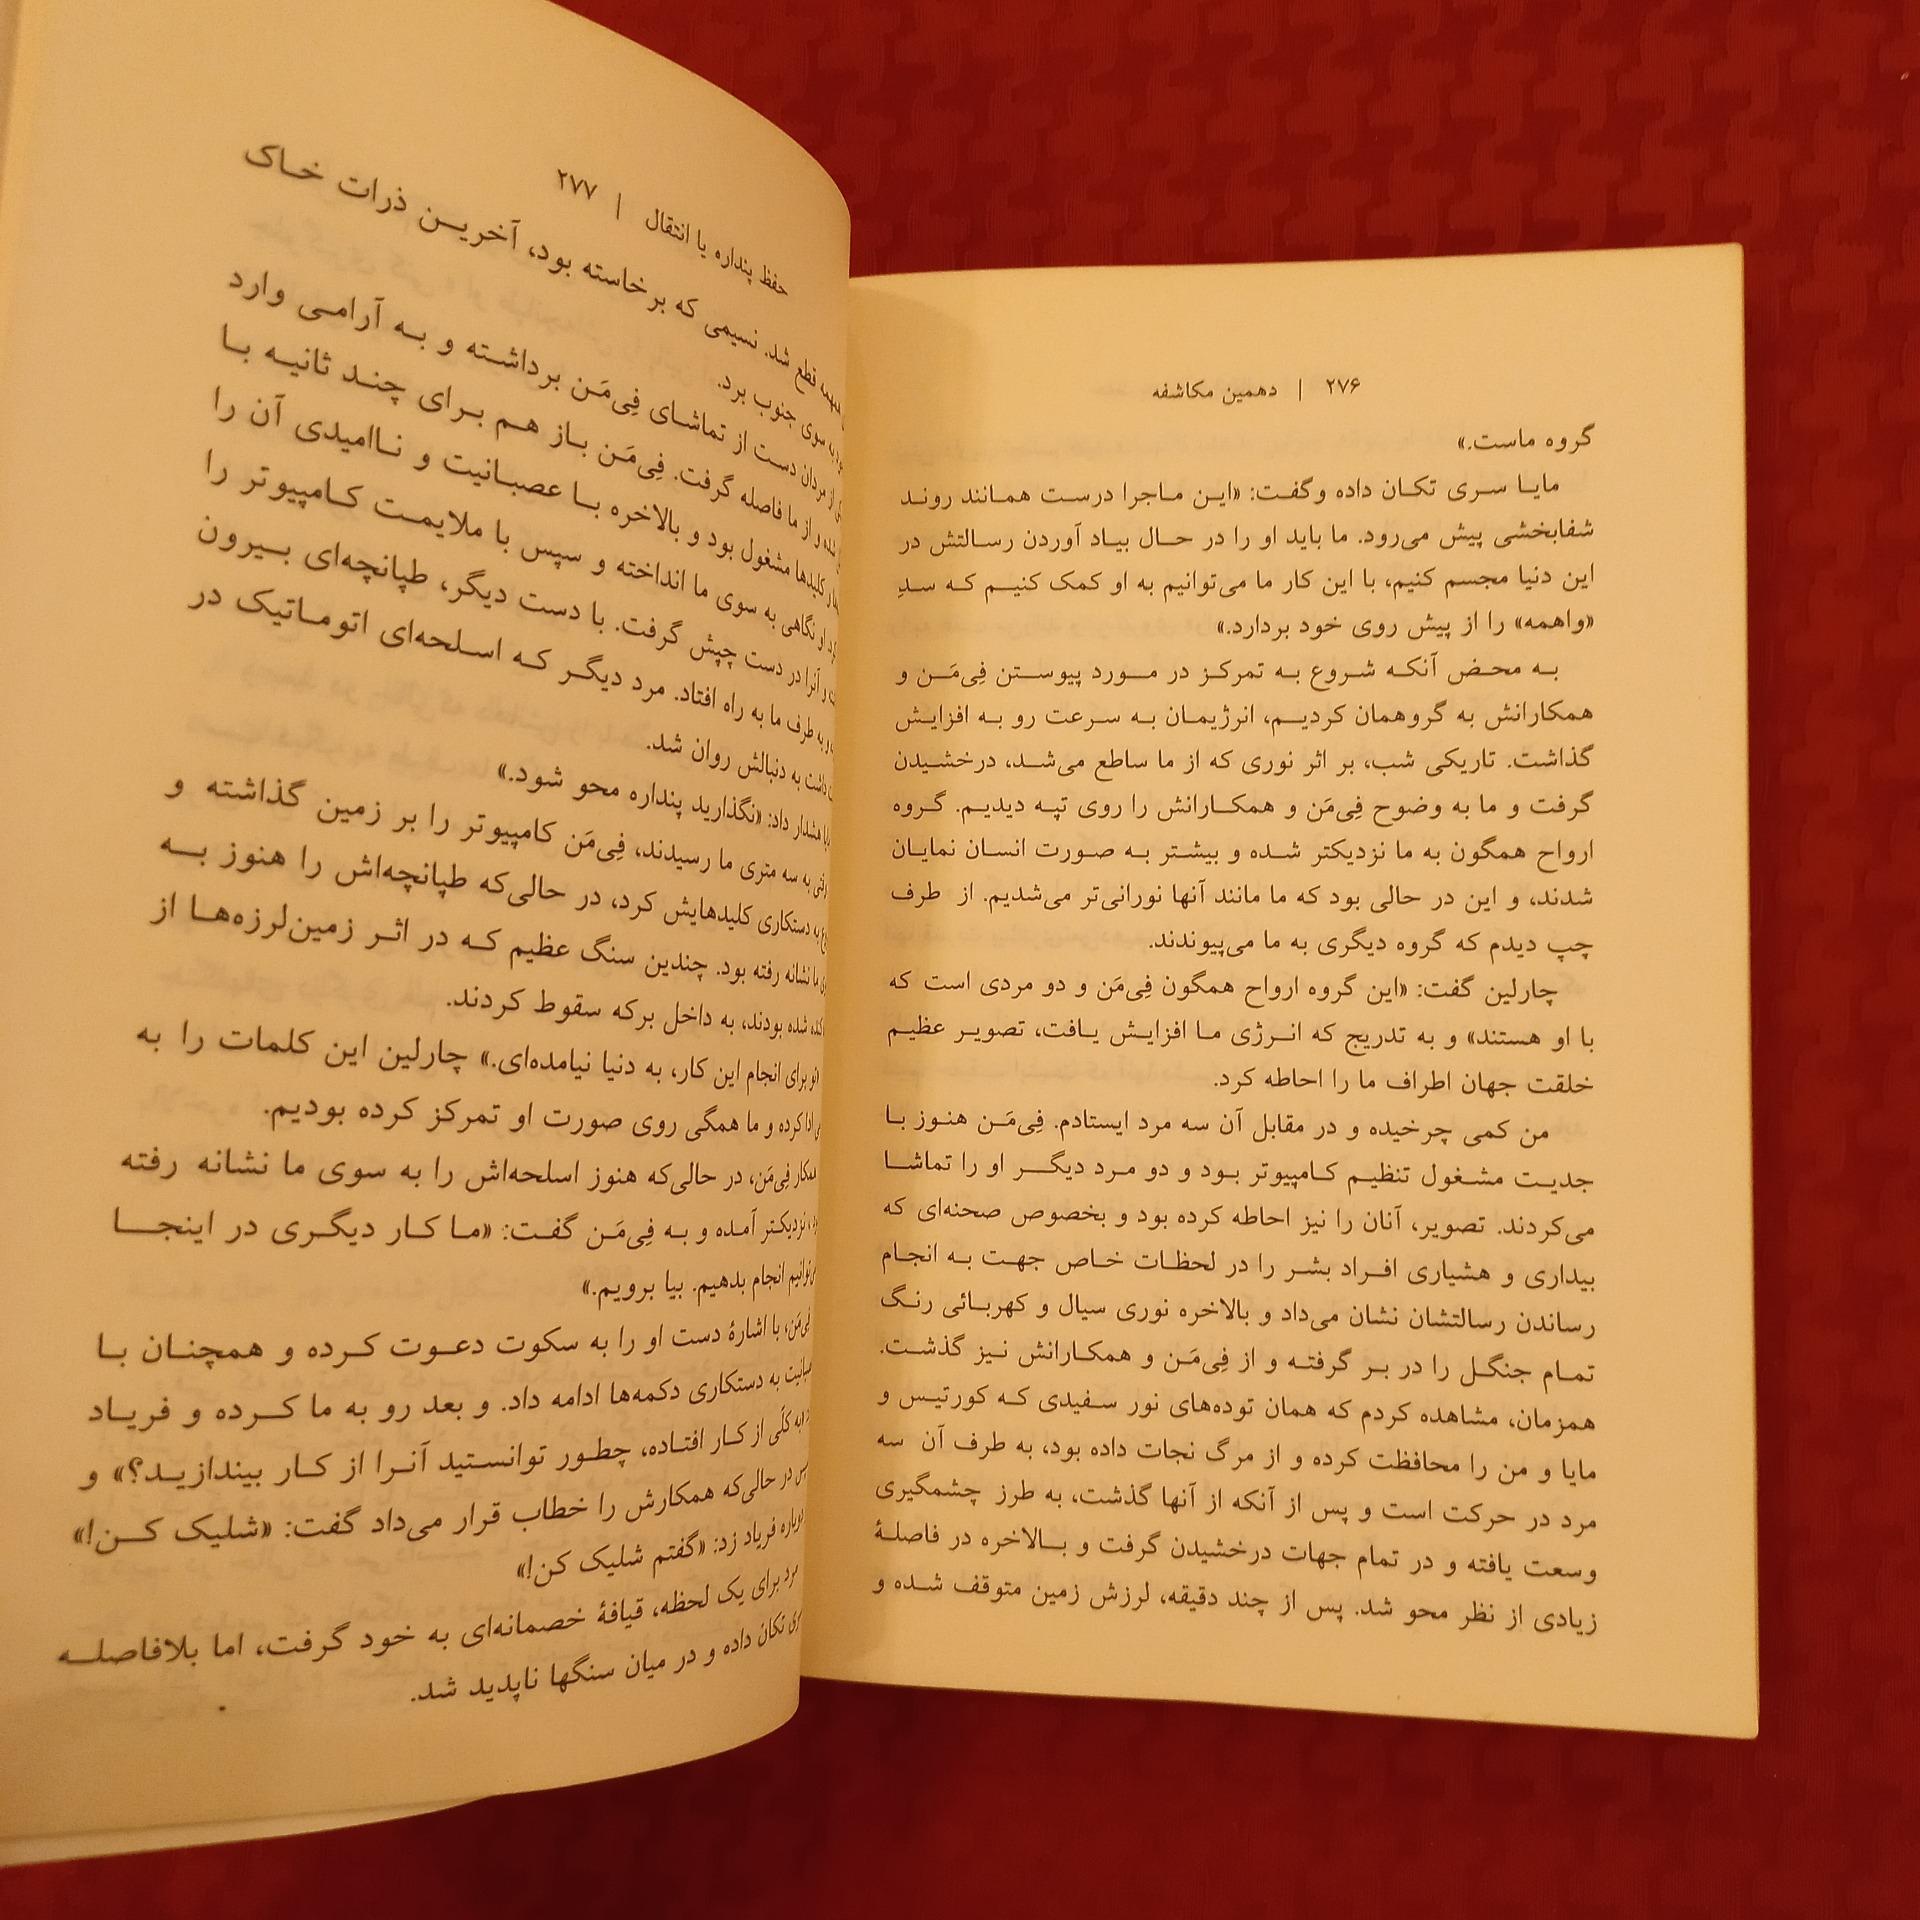 ۲۷۶ | دهمین مکاشفه
گروه ماست.»
مایا سری تکان داده وگفت: «این ماجرا درست همانند روند
شفابخشی پیش می‌رود. ما باید او را در حال بیاد آوردن رسالتش در
این دنیا مجسم کنیم، با این کار ما می‌توانیم به او کمک کنیم که سدِ
«واهمه» را از پیش روی خود بردارد.»
به محض آنکه شروع به تمرکز در مورد پیوستن فِی‌مَن و
همکارانش به گروهمان کردیم، انرژیمان به سرعت رو به افزایش
گذاشت. تاریکی شب، بر اثر نوری که از ما ساطع می‌شد، درخشیدن
گرفت و ما به وضوح فِی‌مَن و همکارانش را روی تپه دیدیم. گروه
ارواح همگون به ما نزدیکتر شده و بیشتر به صورت انسان نمایان
شدند، و این در حالی بود که ما مانند آنها نورانی‌تر می‌شدیم. از طرف
چپ دیدم که گروه دیگری به ما می‌پیوندند.
چارلین گفت: «این گروه ارواح همگون فِی‌مَن و دو مردی است که
با او هستند» و به تدریج که انرژی ما افزایش یافت، تصویر عظیم
خلقت جهان اطراف ما را احاطه کرد.
من کمی چرخیده و در مقابل آن سه مرد ایستادم. فِی‌مَن هنوز با
جدیت مشغول تنظیم کامپیوتر بود و دو مرد دیگر او را تماشا
می‌کردند. تصویر، آنان را نیز احاطه کرده بود و بخصوص صحنه‌ای که
بیداری و هشیاری افراد بشر را در لحظات خاص جهت به انجام
رساندن رسالتشان نشان می‌داد و بالاخره نوری سیال و کهربائی رنگ
تمام جنگل را در بر گرفته و از فِی‌مَن و همکارانش نیز گذشت.
همزمان، مشاهده کردم که همان توده‌های نور سفیدی که کورتیس و
مایا و من را محافظت کرده و از مرگ نجات داده بود، به طرف آن سه
مرد در حرکت است و پس از آنکه از آنها گذشت، به طرز چشمگیری
وسعت یافته و در تمام جهات درخشیدن گرفت و بالاخره در فاصلهٔ
زیادی از نظر محو شد. پس از چند دقیقه، لرزش زمین متوقف شده و
حفظ پنداره یا انتقال | ۲۷۷
قطع شد. نسیمی که برخاسته بود، آخرین ذرات خاک
به سوی جنوب برد.
از مردان دست از تماشای فِی‌مَن برداشته و به آرامی وارد
شده و از ما فاصله گرفت. فِی‌مَن باز هم برای چند ثانیه با
کلیدها مشغول بود و بالاخره با عصبانیت و ناامیدی آن را
او نگاهی به سوی ما انداخته و سپس با ملایمت کامپیوتر را
و آنرا در دست چپش گرفت. با دست دیگر، طپانچه‌ای بیرون
و به طرف ما به راه افتاد. مرد دیگر که اسلحه‌ای اتوماتیک در
داشت به دنبالش روان شد.
هشدار داد: «نگذارید پنداره محو شود.»
به سه متری ما رسیدند، فِی‌مَن کامپیوتر را بر زمین گذاشته و
به دستکاری کلیدهایش کرد، در حالی‌که طپانچه‌اش را هنوز به
ما نشانه رفته بود. چندین سنگ عظیم که در اثر زمین‌لرزه‌ها از
شده بودند، به داخل برکه سقوط کردند.
برای انجام این کار، به دنیا نیامده‌ای.» چارلین این کلمات را به
ادا کرده و ما همگی روی صورت او تمرکز کرده بودیم.
همکار فِی‌مَن، در حالی‌که هنوز اسلحه‌اش را به سوی ما نشانه رفته
نزدیکتر آمده و به فِی‌مَن گفت: «ما کار دیگری در اینجا
انجام بدهیم. بیا برویم.»
فِی‌مَن، با اشارهٔ دست او را به سکوت دعوت کرده و همچنان با
به دستکاری دکمه‌ها ادامه داد. و بعد رو به ما کرده و فریاد
به کلّی از کار افتاده، چطور توانستید آنرا از کار بیندازید؟» و
در حالی‌که همکارش را خطاب قرار می‌داد گفت: «شلیک کن!»
دوباره فریاد زد: «گفتم شلیک کن!»
مرد برای یک لحظه، قیافهٔ خصمانه‌ای به خود گرفت، اما بلافاصله
تکان داده و در میان سنگها ناپدید شد.